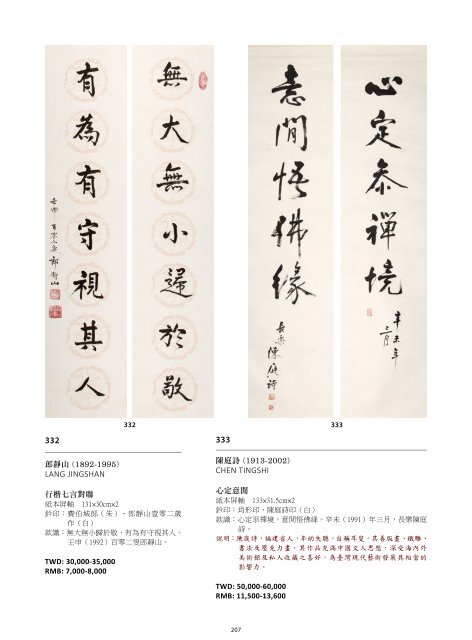 無大無小歸於敬
有為有守視其人
壬申百零二叟郎靜山
心定泰禪境
辛未年三月
意閒悟佛緣
長樂陳庭詩
332
333
332
郎靜山 (1892-1995)
LANG JINGSHAN
行楷七言對聯
紙本屏軸 131x30cmx2
鈐印：費伯城邸（朱）、郎靜山壹零二歲
作（白）
款識：無大無小歸於敬，有為有守視其人。
壬申（1992）百零二叟郎靜山。
TWD: 30,000-35,000
RMB: 7,000-8,000
333
陳庭詩 (1913-2002)
CHEN TINGSHI
心定意閒
紙本屏軸 133x31.5cmx2
鈐印：肖形印、陳庭詩印（白）
款識：心定泰禪境，意閒悟佛緣。辛未（1991）年三月，長樂陳庭
詩。
說明：陳庭詩，福建省人，年幼失聰，自稱耳叟。其善版畫、鐵雕、
書法及壓克力畫，其作品充滿中國文人思想，深受海內外
美術館及私人收藏之喜好，為臺灣現代藝術發展具相當的
影響力。
TWD: 50,000-60,000
RMB: 11,500-13,600
207